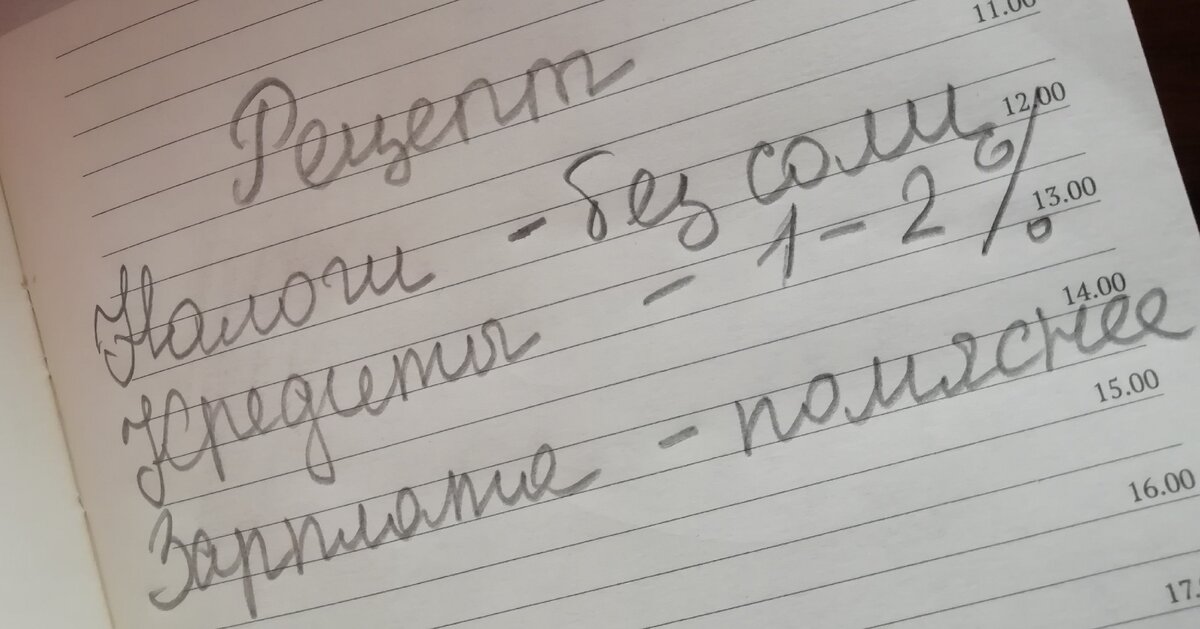 11.00
Рецепт
12.00
Налоги - без соли,
13.00
Кредиты - 1-2%
14.00
Зарплата - помяснее
15.00
16.00